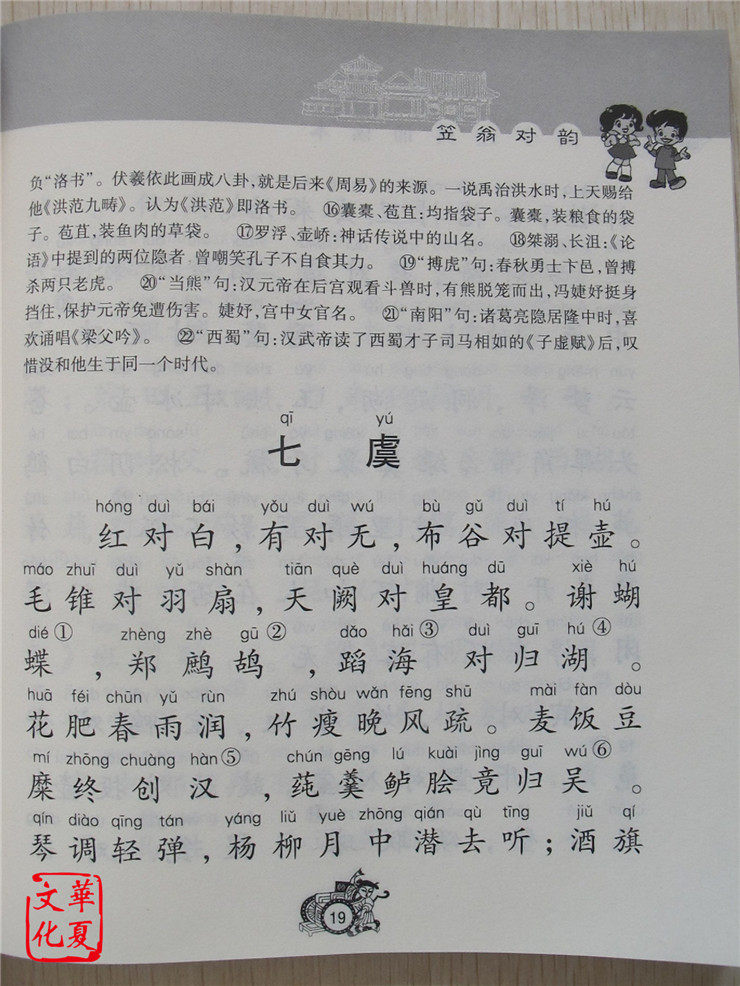 笠翁对韵
负“洛书”。伏羲依此画成八卦,就是后来《周易》的来源。一说禹治洪水时,上天赐给
他《洪范九畴》。认为《洪范》即洛书。 ⑯囊橐、苞苴:均指袋子。囊橐,装粮食的袋
子。苞苴,装鱼肉的草袋。 ⑰罗浮、壶峤:神话传说中的山名。 ⑱桀溺、长沮:《论
语》中提到的两位隐者,曾嘲笑孔子不自食其力。 ⑲“搏虎”句:春秋勇士卞邑,曾搏
杀两只老虎。 ⑳“当熊”句:汉元帝在后宫观看斗兽时,有熊脱笼而出,冯婕妤挺身
挡住,保护元帝免遭伤害。婕妤,宫中女官名。 ㉑“南阳”句:诸葛亮隐居隆中时,喜
欢诵唱《梁父吟》。 ㉒“西蜀”句:汉武帝读了西蜀才子司马相如的《子虚赋》后,叹
惜没和他生于同一个时代。
qī yú
七 虞
hóng duì bái yǒu duì wú bù gǔ duì tí hú
红对白,有对无,布谷对提壶。
máo zhuī duì yǔ shàn tiān què duì huáng dū xiè hú
毛锥对羽扇,天阙对皇都。谢蝴
dié① zhèng zhè gū② dǎo hǎi③ duì guī hú④
蝶,郑鹧鸪,蹈海对归湖。
huā féi chūn yǔ rùn zhú shòu wǎn fēng shū mài fàn dòu
花肥春雨润,竹瘦晚风疏。麦饭豆
mí zhōng chuàng hàn⑤ chún gēng lú kuài jìng guī wú⑥
糜终创汉,莼羹鲈脍竟归吴。
qín diào qīng tán yáng liǔ yuè zhōng qián qù tīng jiǔ qí
琴调轻弹,杨柳月中潜去听;酒旗
19
華夏
文化